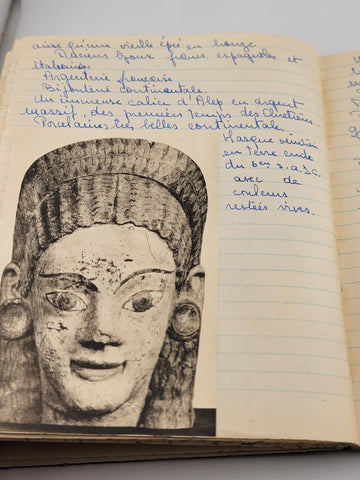 ainsi qu'une vieille épée en bronze.
Plusieurs bijoux francs, espagnols et
italiennes.
Argenterie française.
Bijouterie continentale.
Un immense calice d'Alep en argent
massif, des premiers temps des Chrétiens.
Porcelaines très belles continentale.
Masque
en terre cuite
du 6me s. a. J.C.
avec de
couleurs
restées vives.